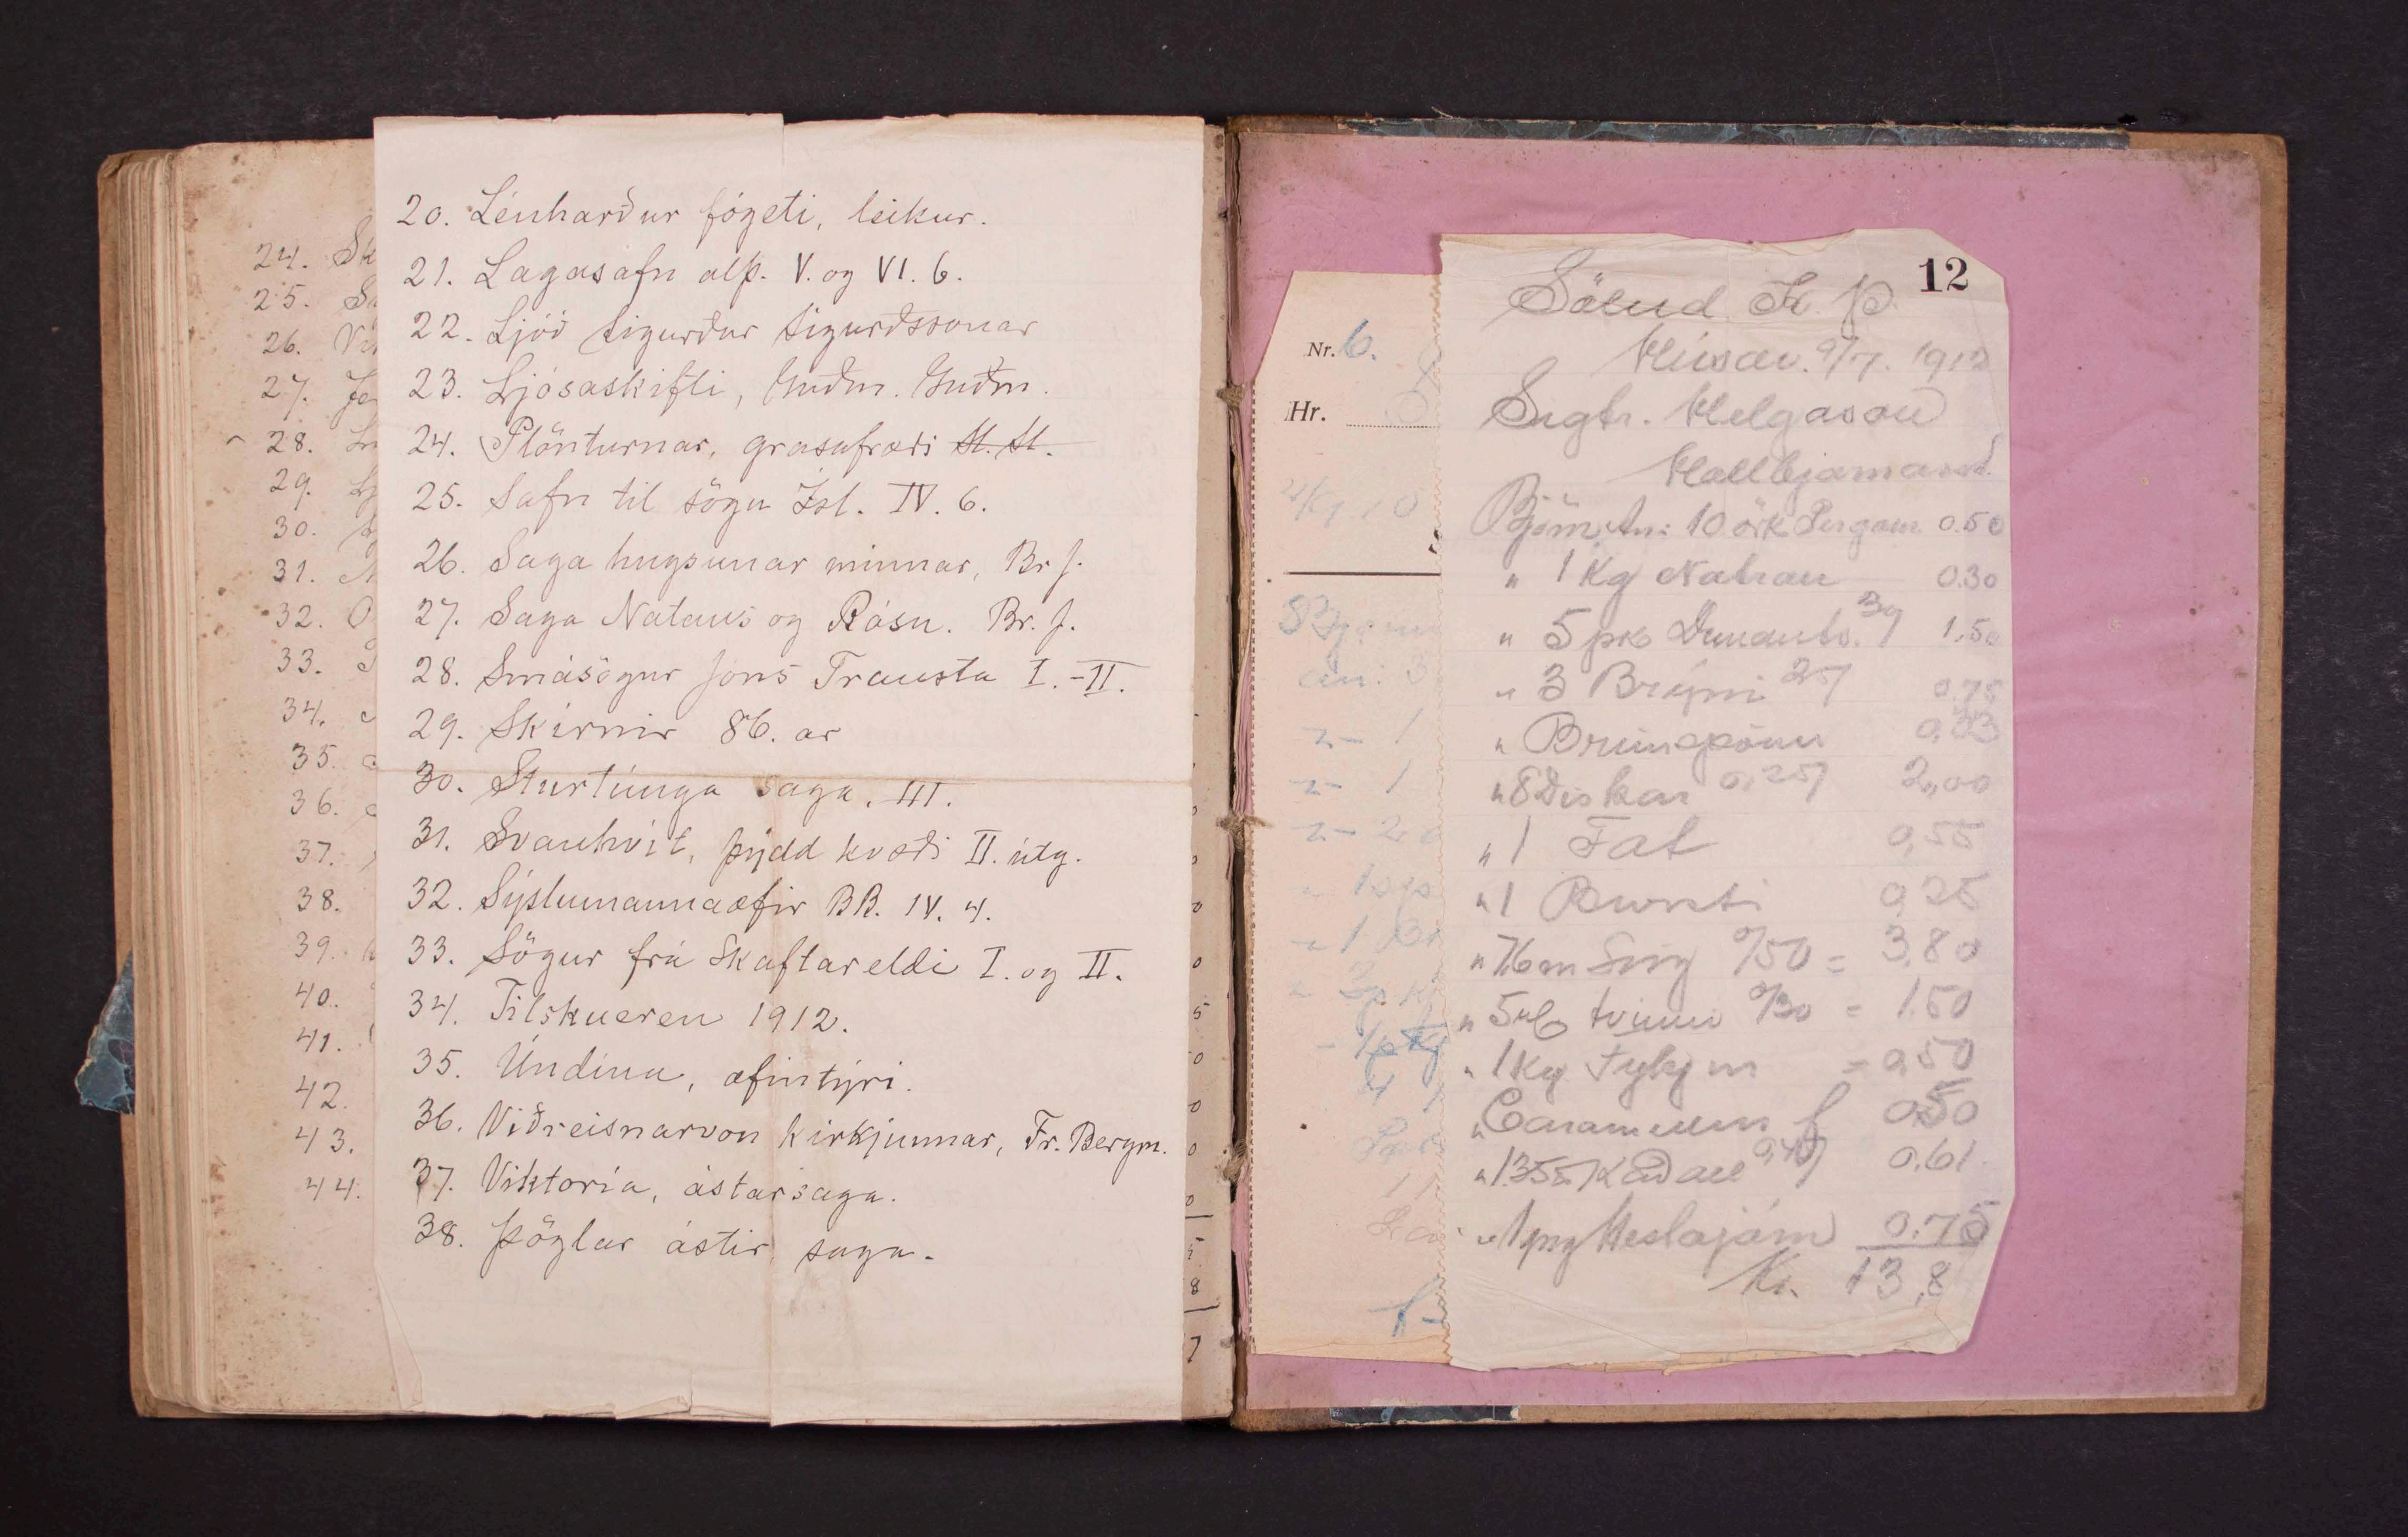 20. Lénharður fógeti, leikur.
21. Lagasafn alþ. V. og VI. b.
22. Ljóð Sigurðar Sigurðssonar
23. Ljósaskifti, Guðm. Guðm.
24. Plönturnar, grasafræði St. St.
25. Safn til sögu Ísl. IV. 6.
26. Saga hugsunar minnar, Br. J.
27. Saga Natans og Rósu. Br. J.
28. Smásögur Jóns Trausta I.-II.
29. Skírnir 86. ár
30. Sturlúnga saga, III.
31. Svanhvít, þýdd kvæði II. útg.
32. Sýslumannaæfir BB. IV. 4.
33. Sögur frá Skaftáreldi I. og II.
34. Tilskueren 1912.
35. Úndína, æfintýri.
36. Viðreisnarvon kirkjunnar, Fr. Bergm.
37. Viktoría, ástarsaga.
38. Þöglar ástir, saga.
24. Sk
25.
26.
27.
28.
29.
30.
31.
32.
33.
34.
35.
36.
37.
38.
39.
40.
41.
42.
43.
44.
Nr. 6.
Hr.
12
Söлud. K. Þ.
Húsav. 9/7. 1912
Sigtr. Helgason
Hallbjarnarst.
Björn An: 10 örk Pergam 0.50
" 1 Kg Natron 0.30
" 5 pk 1.50
" 3 Brýni 25/ 0.75
" Brúnspónn 0,33
" 8 Diskar 0,25/ 2,00
" 1 Fat 0,55
" 1 Bursti 0,25
" 7.6 m Sirz 0/50 = 3,80
" 5 tvinni 0/30 = 1.50
" 1 Kg = 0,50
" 0,50
" 1.35 Kaðall 0,45/ 0.61
" Hestajárn 0.75
Kr. 13,8